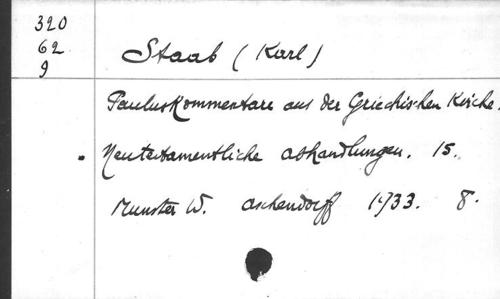 320
62
9
Staab (Karl)
Pauluskommentare aus der Griechischen Kirche.
Neutestamentliche abhandlungen. 15.
Munster W. aschendorff 1933. 8.